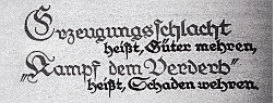 Erzeugungsschlacht
heißt, Güter mehren,
„Kampf dem Verderb"
heißt, Schaden wehren.